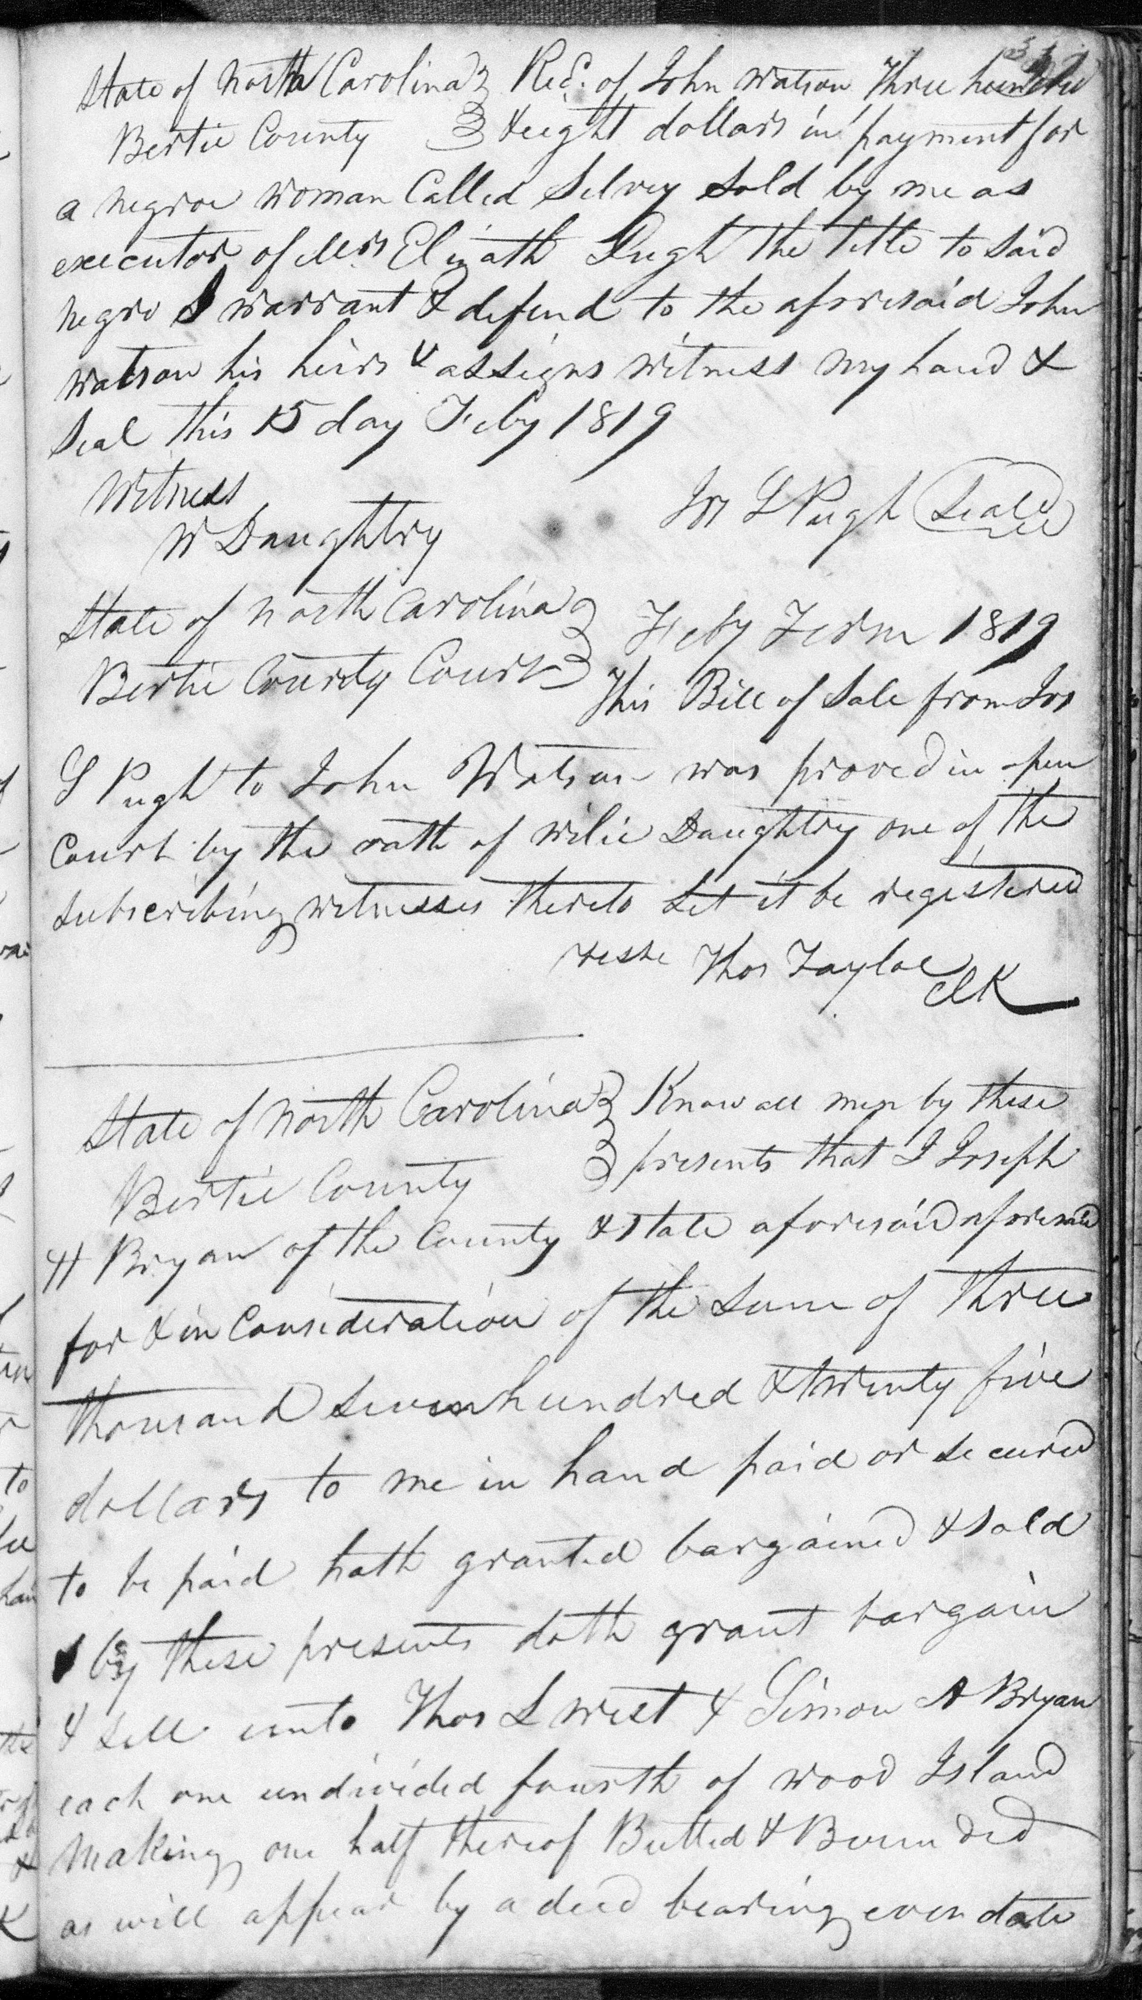 State of North Carolina } Recd. of John Watson Three hundred
Bertie County } & eight dollars in payment for
a negroe woman Called Silvey Sold by me as
executor of Mrs Elizath Pugh the title to said
negro I warrant & defend to the aforesaid John
Watson his heirs & assigns witness my hand &
Seal this 15 day Feby 1819
Witness
Jos S Pugh Seal
W Daughtry
State of North Carolina } Feby Term 1819
Bertie County Court }
This Bill of Sale from Jos
S Pugh to John Watson was proved in open
Court by the oath of Wilie Daughtry one of the
subscribing witnesses thereto Let it be registered
Teste Thos Tayloe
Clk
State of North Carolina } Know all men by these
Bertie County } presents that I Joseph
H Bryan of the County & State aforesaid aforesaid
for & in Consideration of the Sum of three
thousand seven hundred & twenty five
dollars to me in hand paid or secured
to be paid hath granted bargained & sold
& by these presents doth grant bargain
& sell unto Thos L West & Simon A Bryan
each one undivided fourth of wood Island
Making one half thereof Butted & Bounded
as will appear by a deed bearing even date